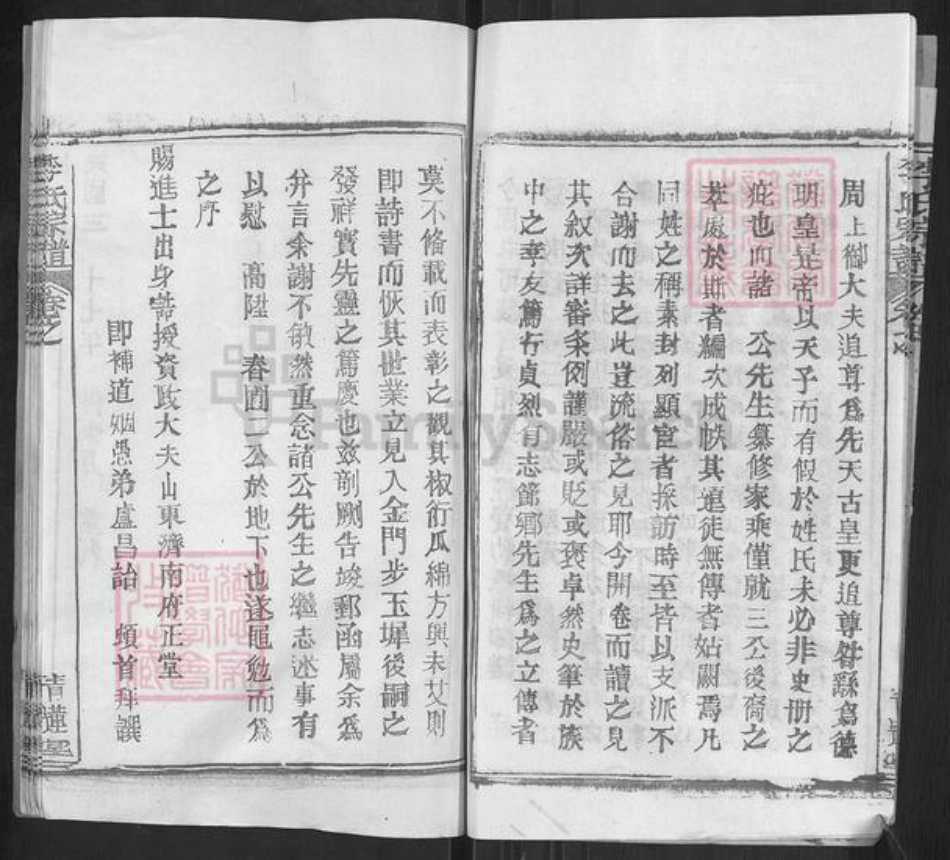 周上御大夫追尊爲先天古皇更追尊咎繇爲德
明皇是帝以天子而有假於姓氏未必非史册之
疵也而諸 公先生纂修家乘僅就三公後裔之
萃處於斯者編次成帙其遷徙無傳者姑闕焉凡
同姓之稱素封列顯宦者採訪時至皆以支派不
合謝而去之此豈流俗之見耶今開卷而讀之見
其叙次詳審条例謹嚴或貶或褒卓然史筆於族
中之孝友篤行貞烈有志節鄉先生爲之立傳者
莫不俻載而表彰之觀其椒衍瓜綿方興未艾則
即詩書而恢其世業立見入金門步玉墀後嗣之
發祥實先靈之篤慶也兹剞劂告竣郵函屬余爲
弁言余謝不敏然重念諸公先生之繼志述事有
以慰 高陞 春圃二公於地下也遂黽勉而爲
之序
賜進士出身誥授資政大夫山東濟南府正堂
即補道姻愚弟盧昌詒 頓首拜譔
李氏宗譜
卷之
青蓮堂
FamilySearch